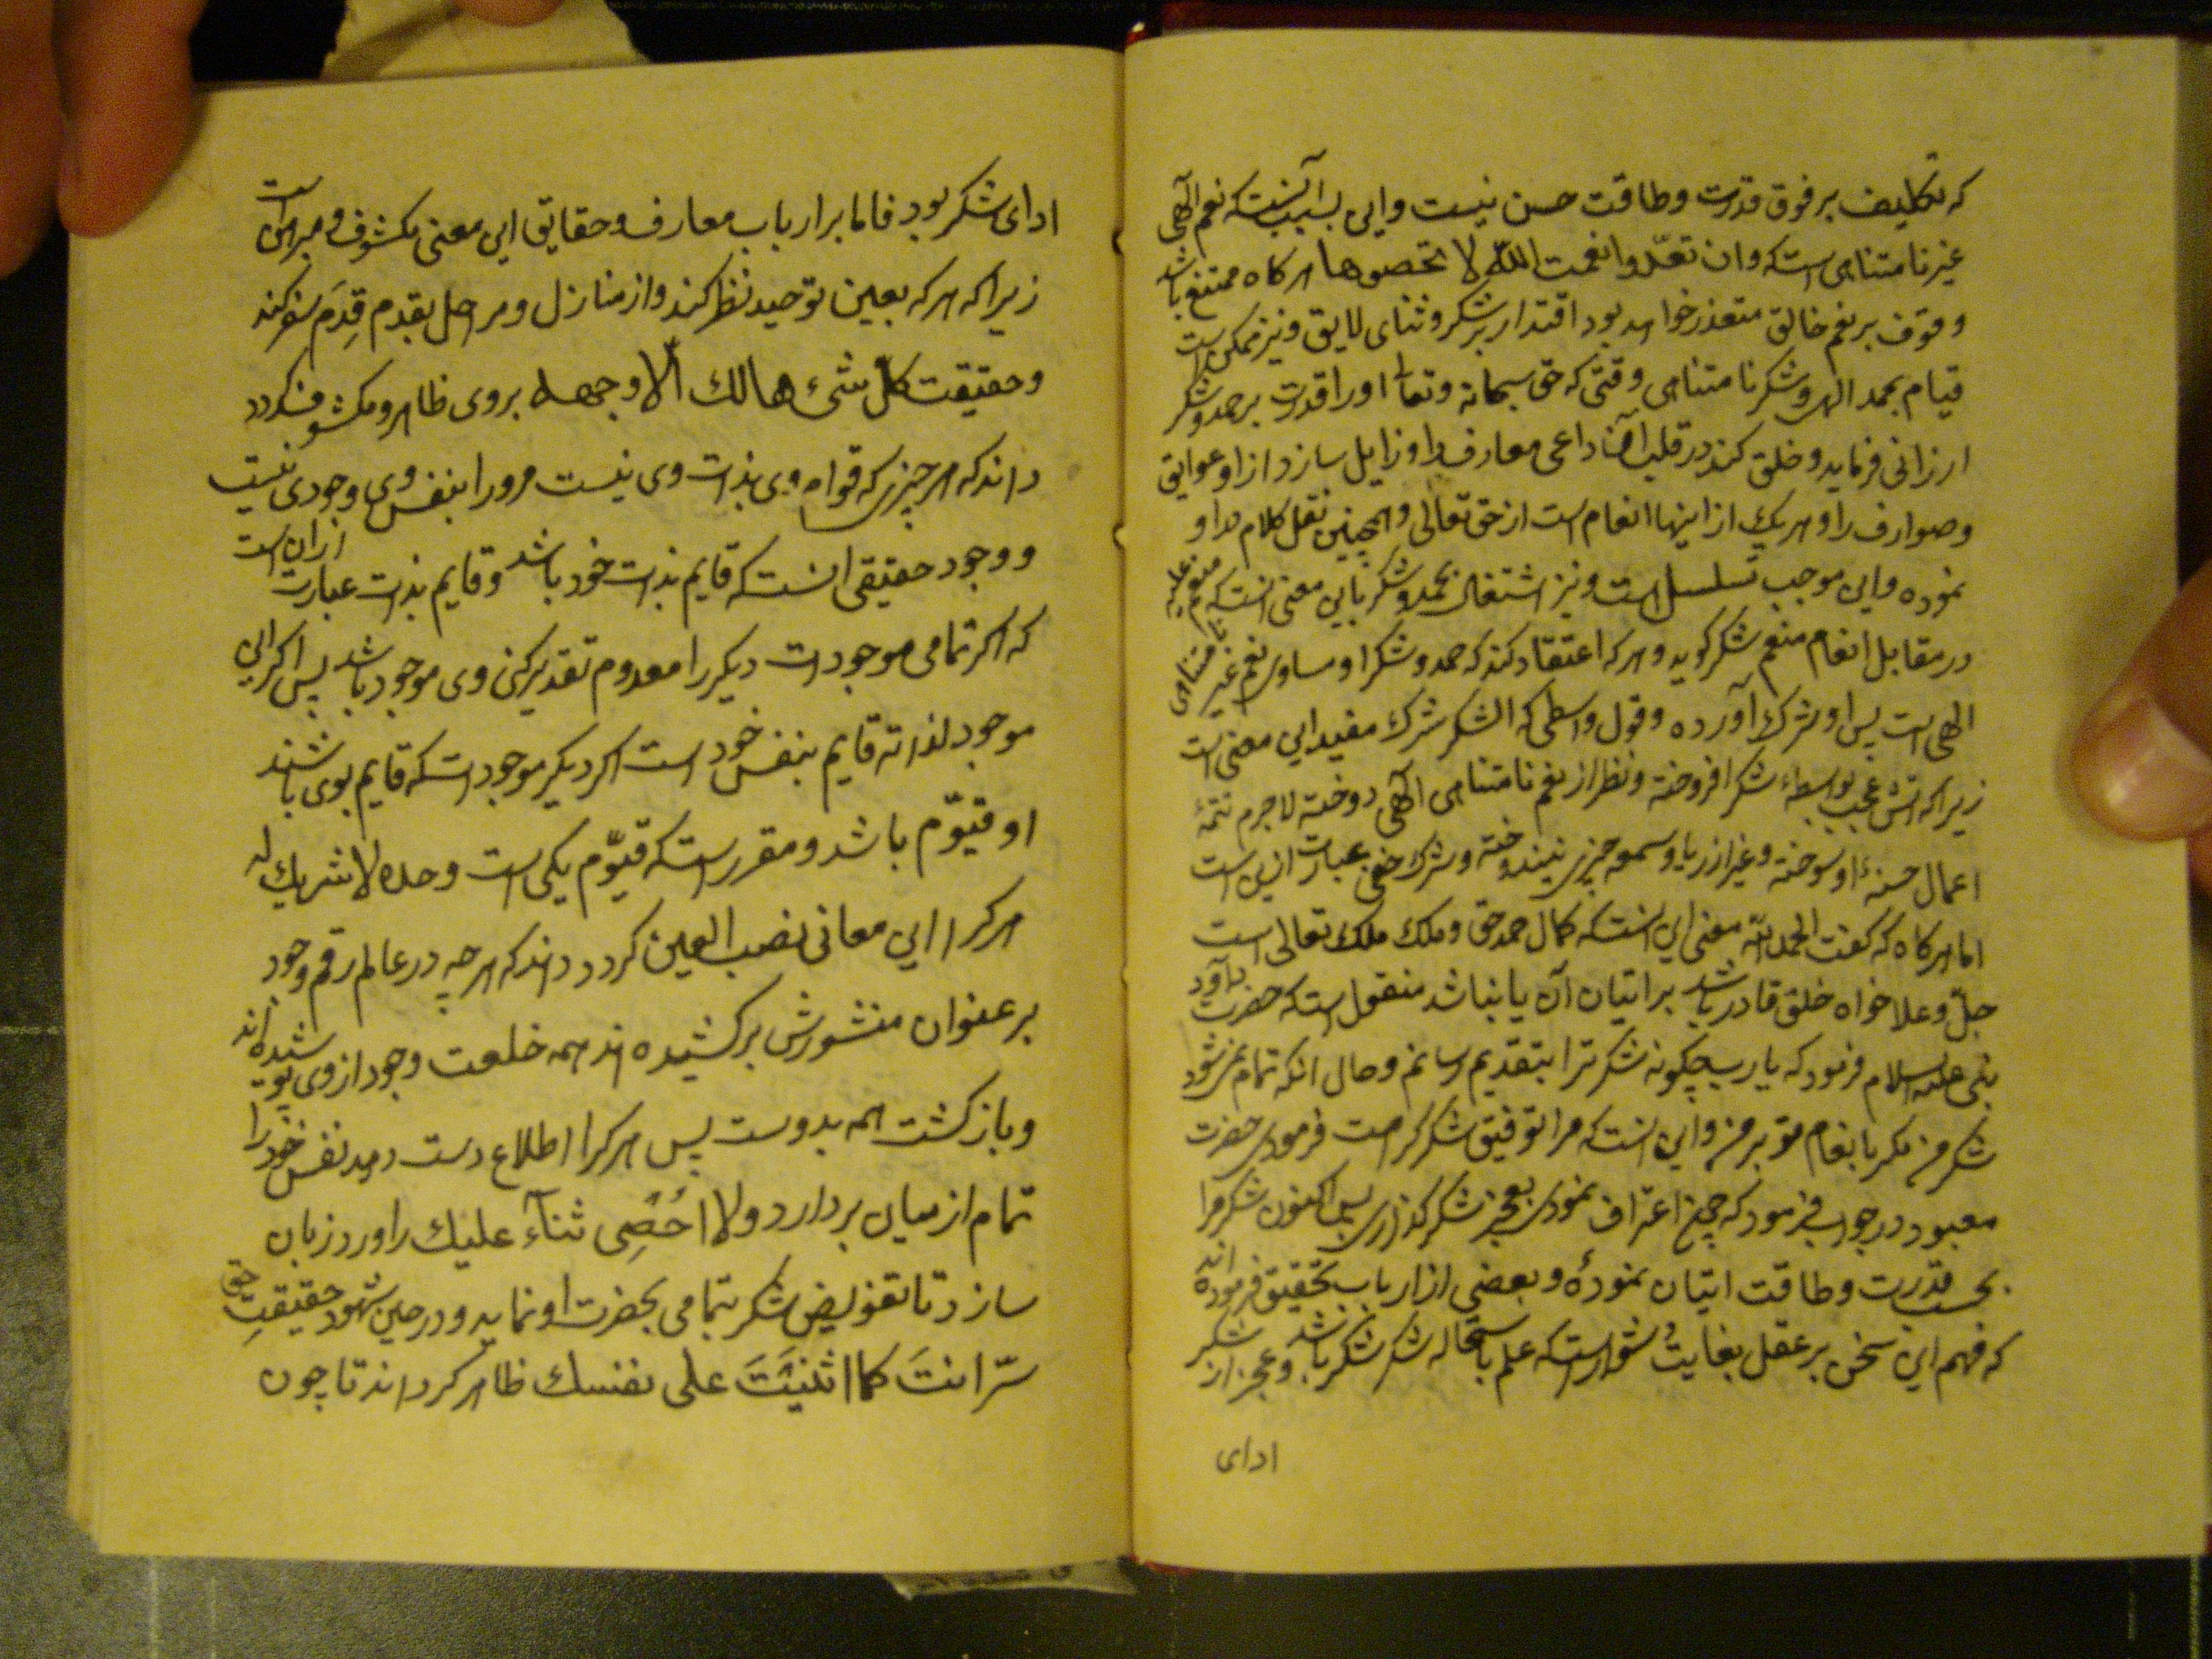 که تکلیف بر فوق قدرت و طاقت حسن نیست و این بسبب آنست که نعم آلهی
غیر نامتناهی است که وان تعدّوا نعمت اللّه لا تحصوها هرکاه ممتنع باشد
وقوف بر نعم خالق متعذر خواهد بود اقتدار بر شکر و ثنای لایق و نیز ممکن است
قیام بحمد الهی و شکر نامتناهی وقتی که حق سبحانه وتعالی او را قدرت بر حمد و شکر
ارزانی فرماید و خلق کند در قلب داعی معارف را و زایل سازد از او عوایق
و صوارف را و هر یک از اینها انعام است از حق تعالی و همچنین نقل کلام در او
نموده و این موجب تسلسل است و نیز اشتغال بحمد و شکر باین معنی است که منعم علیه
در مقابل انعام منعم شکر کوید و هر که اعتقاد کند که حمد و شکر او مساوی نعم غیر متناهی
الهی است پس او شرک آورده و قول واسطی که الشکر شرک مفید این معنی است
زیرا که آتش عجب بواسطهٔ شکر افروخته و نظر از نعم نامتناهی آلهی دوخته لاجرم
اعمال حسنهٔ او سوخته و غیر از ریا و سمعه چیزی نیندوخته و شرک خفی عبارت ازین است
اما هرکاه که کفت الحمد للّه معنی این است که کمال حمد حق و ملک ملک تعالی است
جلّ و علا خواه خلق قادر باشد بر اتیان آن یا نباشد منقول است که حضرت داود
نبی علیه السلام فرمود که یا رب چکونه شکر ترا بتقدیم رسانم و حال انکه تمام نمی شود
شکر من مکر بانعام تو بر من و این است که مرا توفیق شکر کرامت فرمودی حضرت
معبود در جواب فرمود که چون اعتراف نمودی بعجز شکر کذاری پس اکنون شکر مرا
بحسب قدرت و طاقت اتیان نمودهٔ و بعضی از ارباب تحقیق فرموده اند
که فهم این سخن بر عقل بغایت دشوار است که علم باستحاله شکر شکر باشد و عجز از شکر
ادای
ادای شکر بود فاما بر ارباب معارف و حقایق این معنی مکشوف و مبرهن است
زیرا که هر که بعین توحید نظر کند و از منازل و مراحل بقدم قِدَم سفر کند
و حقیقت کلّ شیء هالك الّا وجهه بر وی ظاهر و مکشوف کردد
داند که هر چیزی که قوام وی بذات وی نیست مر ورا بنفس وی وجودی نیست
و وجود حقیقی انست که قایم بذات خود باشد و قایم بذات عبارت ازان است
که اکر تمامی موجودات دیکر را معدوم تقدیر کنی وی موجود باشد پس اکر این
موجود لذاته قایم بنفس خود است اکر دیکر موجودات که قایم بوی باشند
او قیّوم باشد و مقرر است که قیّوم یکی است وحده لا شریك له
هرکرا این معانی نصب العین کردد داند که هر چه در عالم رقم وجود
بر عنوان منشورش برکشیده اند همه خلعت وجود از وی پوشیده اند
و بازکشت همه بدوست پس هرکرا اطلاع دست دهد نفس خود را
تمام از میان بردارد و لا اُحْصِی ثنآء علیك را ورد زبان
سازد تا تفویض شکر بتمامی بحضرت او نماید و در حین شهود حقیقتِ حق
سرّ انتَ کما اثنیتَ علی نفسك ظاهر کرداند تا چون